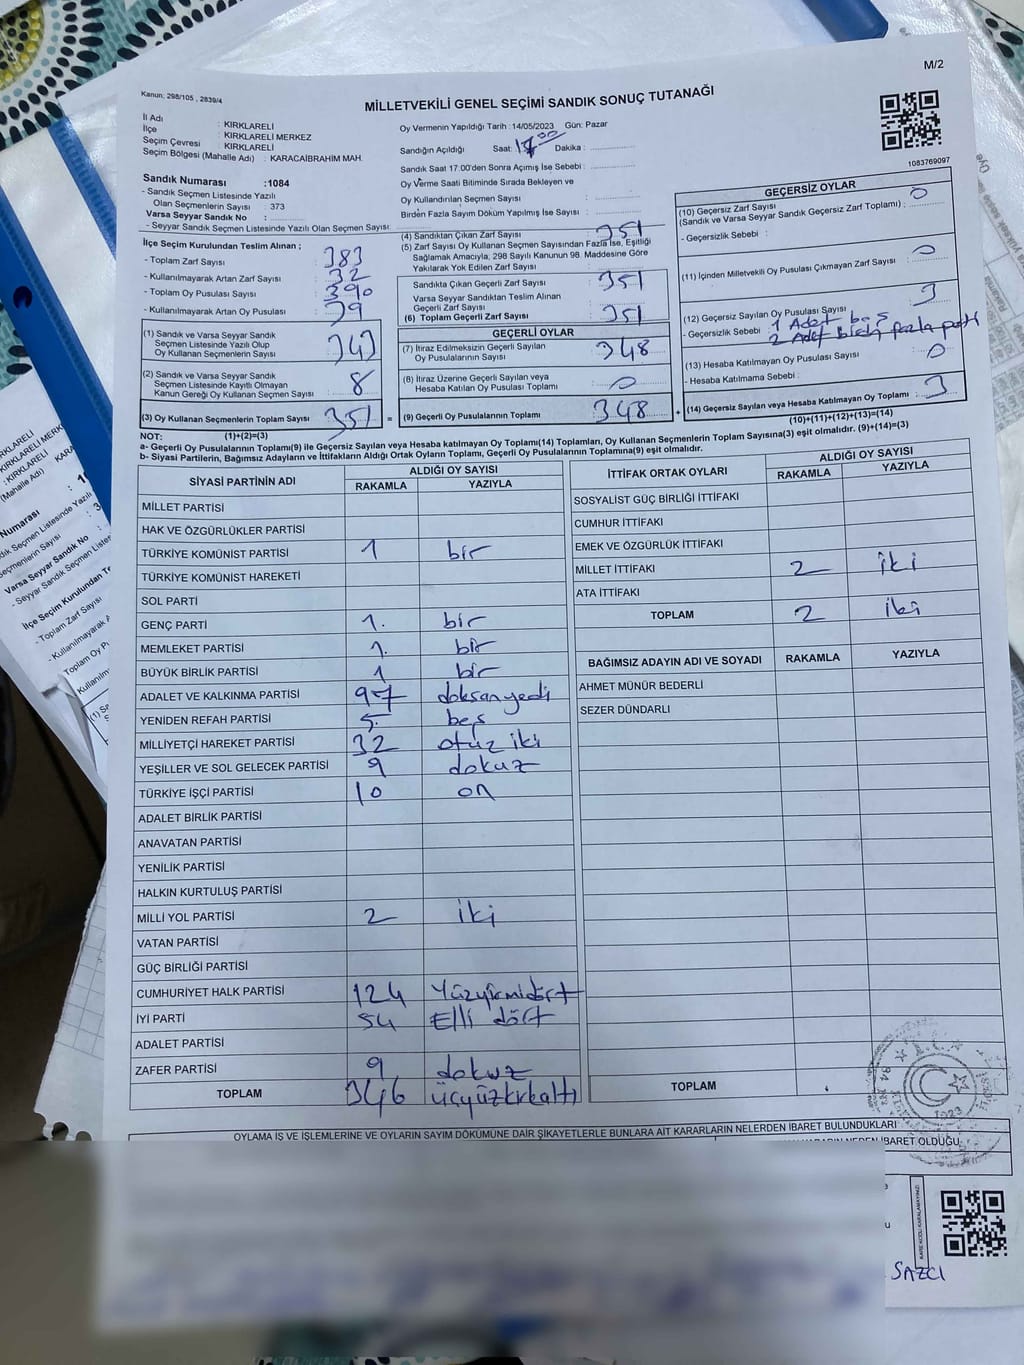 M/2
Kanun: 298/105 , 2839/4
MİLLETVEKİLİ GENEL SEÇİMİ SANDIK SONUÇ TUTANAĞI
İl Adı : KIRKLARELİ
İlçe : KIRKLARELİ MERKEZ
Seçim Çevresi : KIRKLARELİ
Seçim Bölgesi (Mahalle Adı) : KARACAİBRAHİM MAH.
Oy Vermenin Yapıldığı Tarih :14/05/2023 Gün: Pazar
Sandığın Açıldığı Saat: 17 00 Dakika :
Sandık Saat 17:00'den Sonra Açımış İse Sebebi :
Oy Verme Saati Bitiminde Sırada Bekleyen ve
Oy Kullandırılan Seçmen Sayısı :
Birden Fazla Sayım Döküm Yapılmış İse Sayısı :
1083769097
Sandık Numarası :1084
- Sandık Seçmen Listesinde Yazılı
Olan Seçmenlerin Sayısı : 373
Varsa Seyyar Sandık No :
- Seyyar Sandık Seçmen Listesinde Yazılı Olan Seçmen Sayısı:
İlçe Seçim Kurulundan Teslim Alınan ;
- Toplam Zarf Sayısı : 383
- Kullanılmayarak Artan Zarf Sayısı : 32
- Toplam Oy Pusulası Sayısı : 390
- Kullanılmayarak Artan Oy Pusulası : 39
(1) Sandık ve Varsa Seyyar Sandık
Seçmen Listesinde Yazılı Olup
Oy Kullanan Seçmenlerin Sayısı 343
(2) Sandık ve Varsa Seyyar Sandık
Seçmen Listesinde Kayıtlı Olmayan
Kanun Gereği Oy Kullanan Seçmen Sayısı : 8
(3) Oy Kullanan Seçmenlerin Toplam Sayısı : 351 =
(4) Sandıktan Çıkan Zarf Sayısı : 351
(5) Zarf Sayısı Oy Kullanan Seçmen Sayısından Fazla İse, Eşitliği
Sağlamak Amacıyla, 298 Sayılı Kanunun 98. Maddesine Göre
Yakılarak Yok Edilen Zarf Sayısı :
Sandıkta Çıkan Geçerli Zarf Sayısı : 351
Varsa Seyyar Sandıktan Teslim Alınan
Geçerli Zarf Sayısı :
(6) Toplam Geçerli Zarf Sayısı : 351
GEÇERLİ OYLAR
(7) İtiraz Edilmeksizin Geçerli Sayılan
Oy Pusulalarının Sayısı : 348
(8) İtiraz Üzerine Geçerli Sayılan veya
Hesaba Katılan Oy Pusulası Toplamı : 0
(9) Geçerli Oy Pusulalarının Toplamı 348 +
GEÇERSİZ OYLAR
(10) Geçersiz Zarf Sayısı
(Sandık ve Varsa Seyyar Sandık Geçersiz Zarf Toplamı) : 0
- Geçersizlik Sebebi :
(11) İçinden Milletvekili Oy Pusulası Çıkmayan Zarf Sayısı : 0
(12) Geçersiz Sayılan Oy Pusulası Sayısı : 3
- Geçersizlik Sebebi : 1 Adet boş
2 Adet birden fazla parti
(13) Hesaba Katılmayan Oy Pusulası Sayısı : 0
- Hesaba Katılmama Sebebi :
(14) Geçersiz Sayılan veya Hesaba Katılmayan Oy Toplamı : 3
(10)+(11)+(12)+(13)=(14)
NOT: (1)+(2)=(3)
a- Geçerli Oy Pusulalarının Toplamı(9) ile Geçersiz Sayılan veya Hesaba katılmayan Oy Toplamı(14) Toplamları, Oy Kullanan Seçmenlerin Toplam Sayısına(3) eşit olmalıdır. (9)+(14)=(3)
b- Siyasi Partilerin, Bağımsız Adayların ve İttifakların Aldığı Ortak Oyların Toplamı, Geçerli Oy Pusulalarının Toplamına(9) eşit olmalıdır.
SİYASİ PARTİNİN ADI ALDIĞI OY SAYISI
RAKAMLA YAZIYLA
MİLLET PARTİSİ
HAK VE ÖZGÜRLÜKLER PARTİSİ
TÜRKİYE KOMÜNİST PARTİSİ 1 bir
TÜRKİYE KOMÜNİST HAREKETİ
SOL PARTİ
GENÇ PARTİ 1. bir
MEMLEKET PARTİSİ 1. bir
BÜYÜK BİRLİK PARTİSİ 1 bir
ADALET VE KALKINMA PARTİSİ 97 doksanyedi
YENİDEN REFAH PARTİSİ 5. beş
MİLLİYETÇİ HAREKET PARTİSİ 32 otuz iki
YEŞİLLER VE SOL GELECEK PARTİSİ 9 dokuz
TÜRKİYE İŞÇİ PARTİSİ 10 on
ADALET BİRLİK PARTİSİ
ANAVATAN PARTİSİ
YENİLİK PARTİSİ
HALKIN KURTULUŞ PARTİSİ
MİLLİ YOL PARTİSİ 2 iki
VATAN PARTİSİ
GÜÇ BİRLİĞİ PARTİSİ
CUMHURİYET HALK PARTİSİ 124 Yüzyirmidört
İYİ PARTİ 54 Elli dört
ADALET PARTİSİ
ZAFER PARTİSİ 9 dokuz
TOPLAM 346 üçyüzkırkaltı
İTTİFAK ORTAK OYLARI ALDIĞI OY SAYISI
RAKAMLA YAZIYLA
SOSYALİST GÜÇ BİRLİĞİ İTTİFAKI
CUMHUR İTTİFAKI
EMEK VE ÖZGÜRLÜK İTTİFAKI
MİLLET İTTİFAKI 2 iki
ATA İTTİFAKI
TOPLAM 2 iki
BAĞIMSIZ ADAYIN ADI VE SOYADI RAKAMLA YAZIYLA
AHMET MÜNÜR BEDERLİ
SEZER DÜNDARLI
TOPLAM
OYLAMA İŞ VE İŞLEMLERİNE VE OYLARIN SAYIM DÖKÜMÜNE DAİR ŞİKAYETLERLE BUNLARA AİT KARARLARIN NELERDEN İBARET BULUNDUKLARI
İBARET OLDUĞU
SAZCI